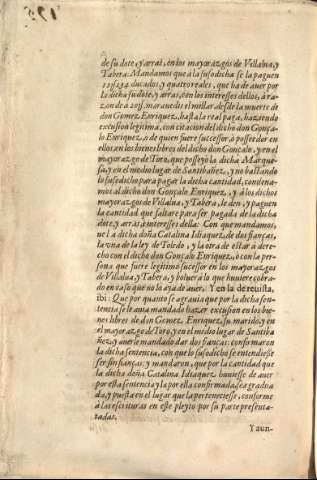 de su dote, y arras, en los mayorazgos de Villalua, y
Tabera: Mandamos que à la susodicha se la paguen
ducados, y quatro reales, que ha de auer por
la dicha su dote, y arras, con los interesses dellos, à ra-
zon de a 20y. marauedis el millar desde la muerte de
don Gomez Enriquez, hasta la real paga, haziendo
excusion legitima, con citacion del dicho don Gonça-
lo Enriquez, o de quien fuere successor, à posseedor en
ellos, en los bienes libres del dicho don Gonçalo, y en el
mayorazgo de Toro, que posseyò la dicha Marque-
sa, y en el medio lugar de Santibañez, y no bastando
lo susodicho para pagar la dicha cantidad, condena-
mos al dicho don Gonçalo Enriquez, y à los dichos
mayorazgos de Villalua, y Tabera, le den, y paguen
la cantidad que faltare para ser pagada de la dicha
dote, y arras, è interesses della: Con que mandamos,
que la dicha doña Catalina Idiaquez, dè dos fianças,
la vna de la ley de Toledo, y la otra de estar à dere-
cho con el dicho don Gonçalo Enriquez, ò con la per-
sona que fuere legitimo successor en los mayorazgos
de Villalua, y Tabera, y boluer à lo que huuiere cobra-
do en caso que no lo aya de auer. Y en la de reuista,
ibi: Que por quanto se agrauia que por la dicha sen-
tencia se le auia mandado hazer excusion en los bie-
nes libres de don Gomez Enriquez, su marido, y en
el mayorazgo de Toro, y en el medio lugar de Santiba
ñez, y auerle mandado dar dos fiancas: confirmaron
la dicha sentencia, con que lo susodicho se entendiesse
ser sin fianças; y mandaron, que por la cantidad que
la dicha doña Catalina Idiaquez huuiesse de auer
por esta sentencia y la por ella confirmada, sea gradua
da, y puesta en el lugar que la perteneciesse, conforme
à las escrituras en este pleyto por su parte presenta-
tadas.
Y aun-